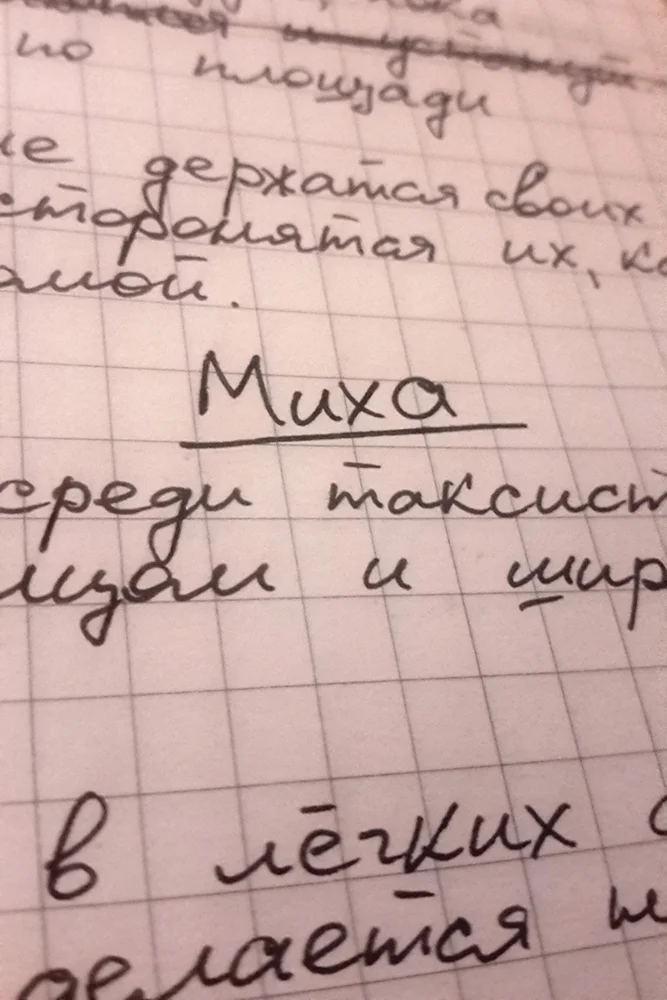 по площади
держатся своих
сторонятся их,
Миха
среди таксист
и шир
в лёгких
делается